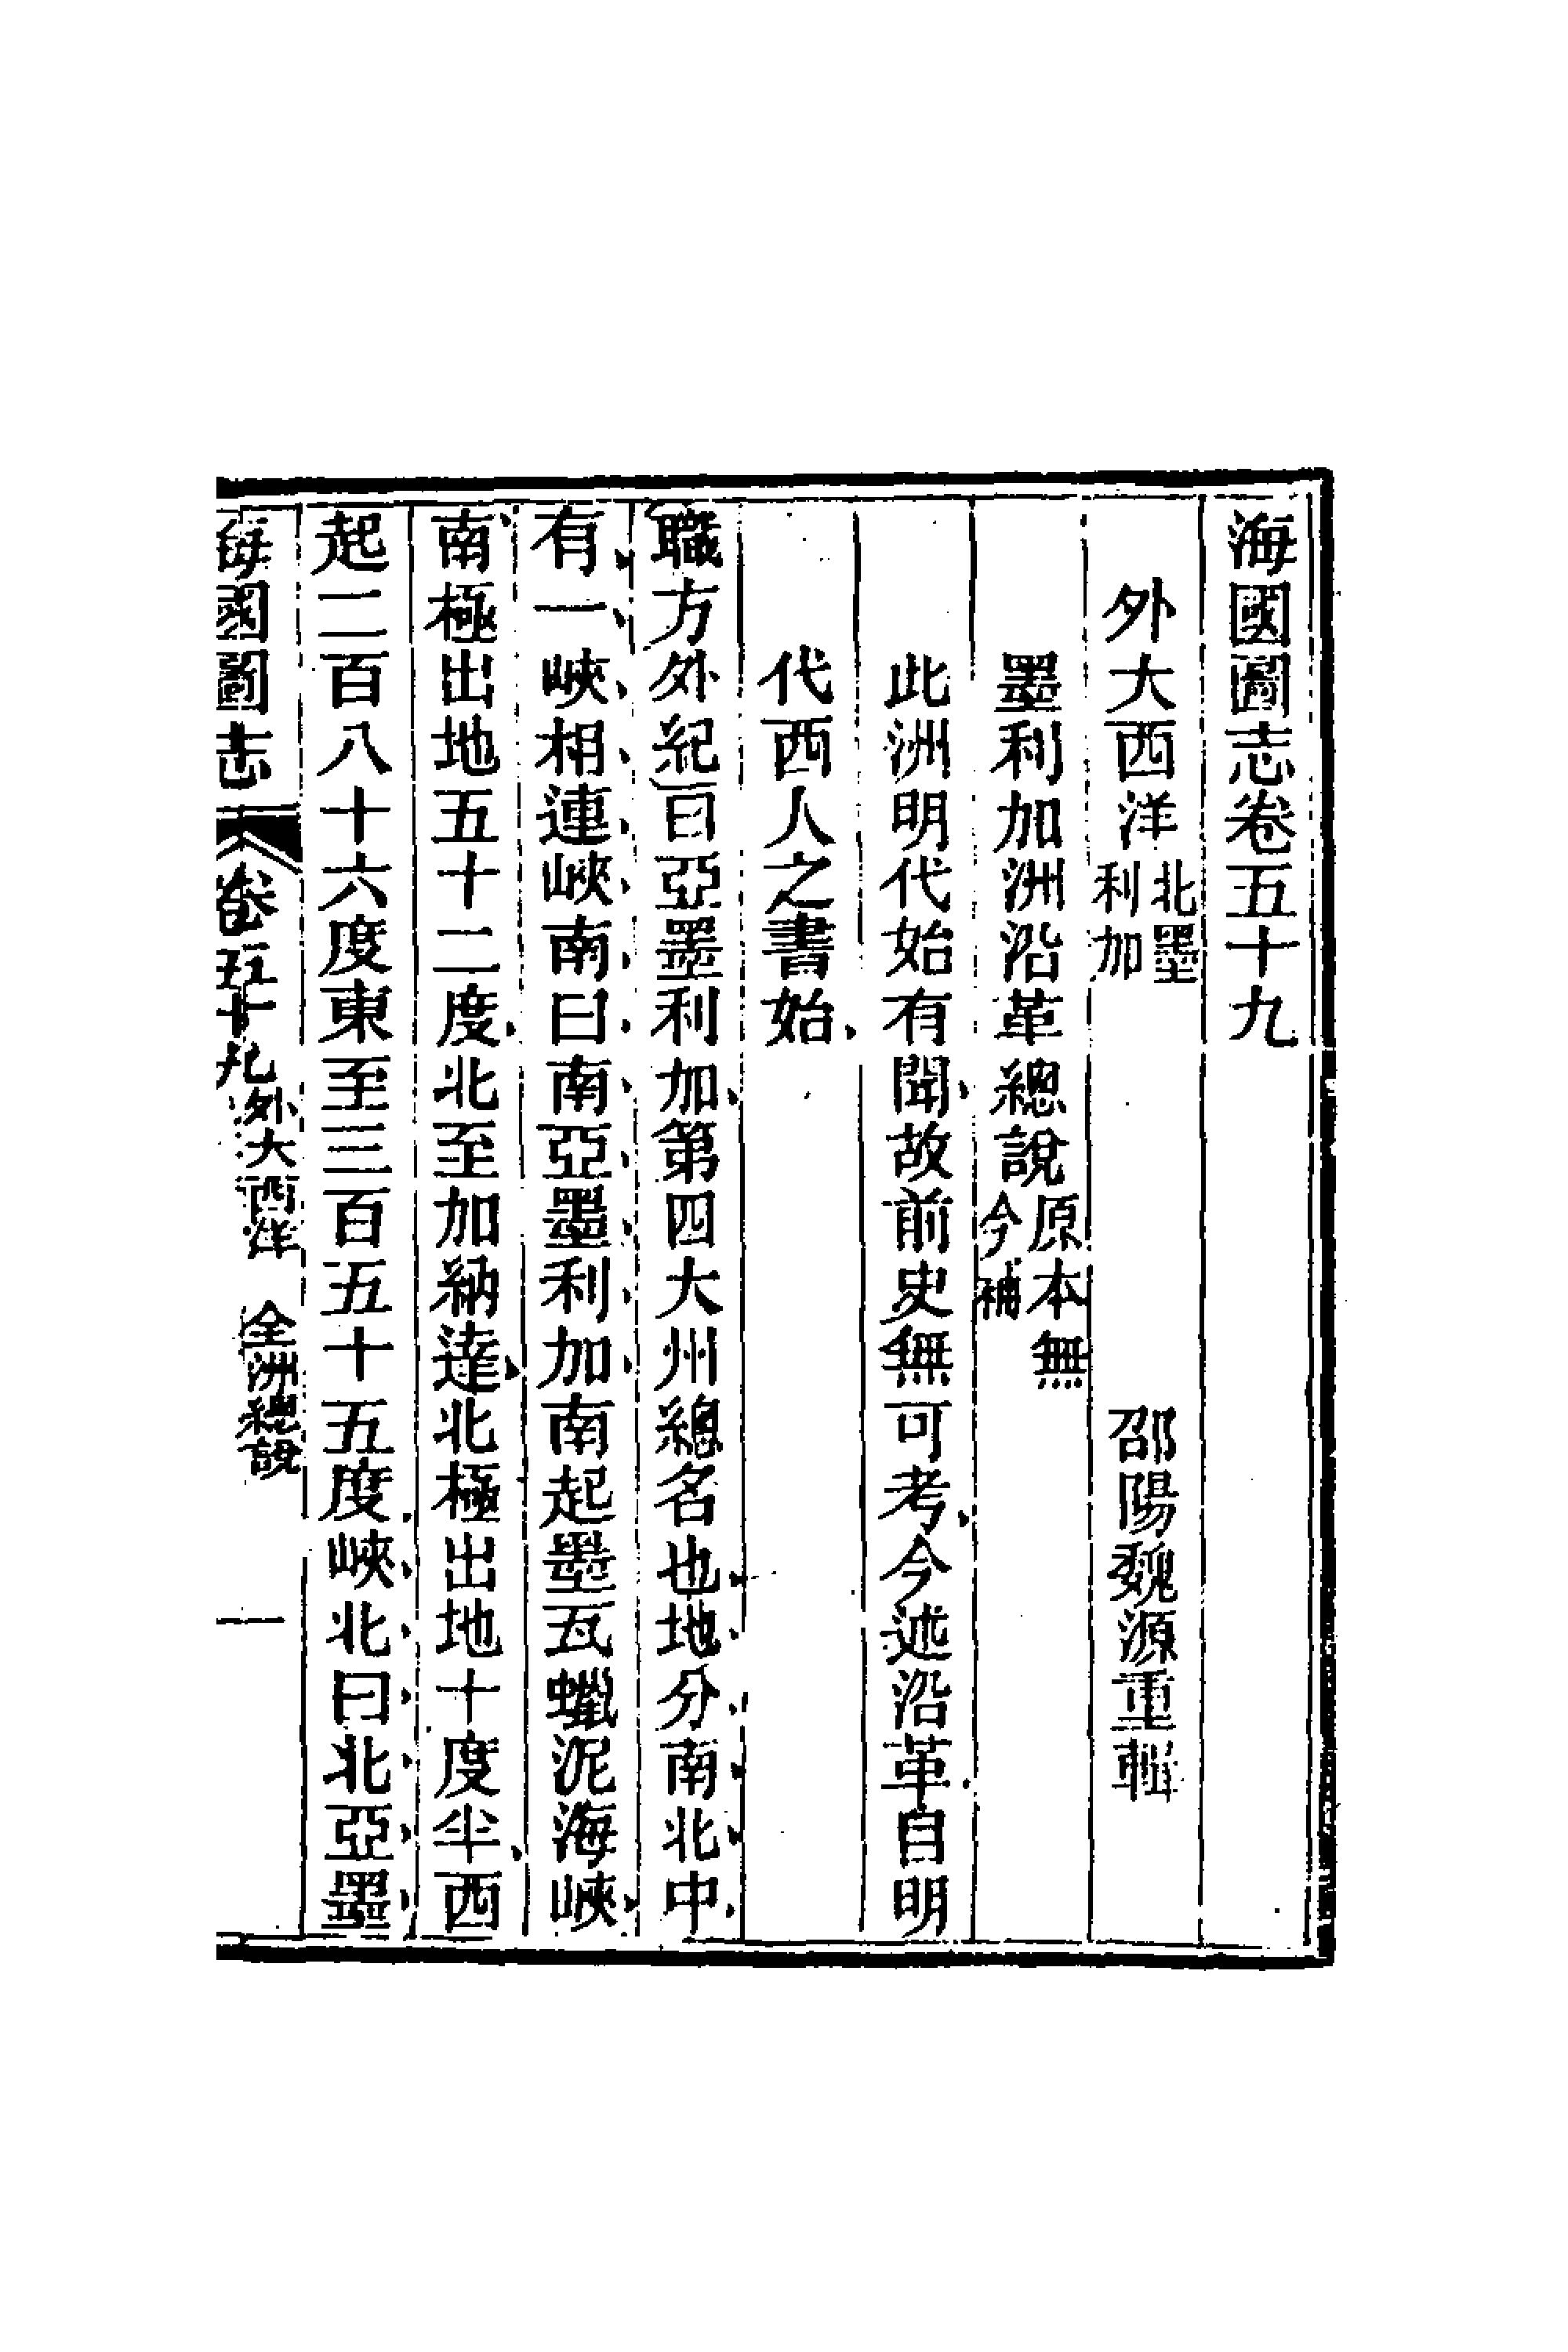 海國圖志卷五十九
外大西洋北墨利加 邵陽魏源重輯
墨利加洲沿革總說原本無今補
此洲明代始有聞故前史無可考今述沿革自明
代西人之書始
職方外紀曰亞墨利加第四大州總名也地分南北中
有一峽相連峽南曰南亞墨利加南起墨瓦蠟泥海峽
南極出地五十二度北至加納達北極出地十度半西
起二百八十六度東至三百五十五度峽北曰北亞墨
海國圖志 卷五十九外大西洋 全洲總說 一